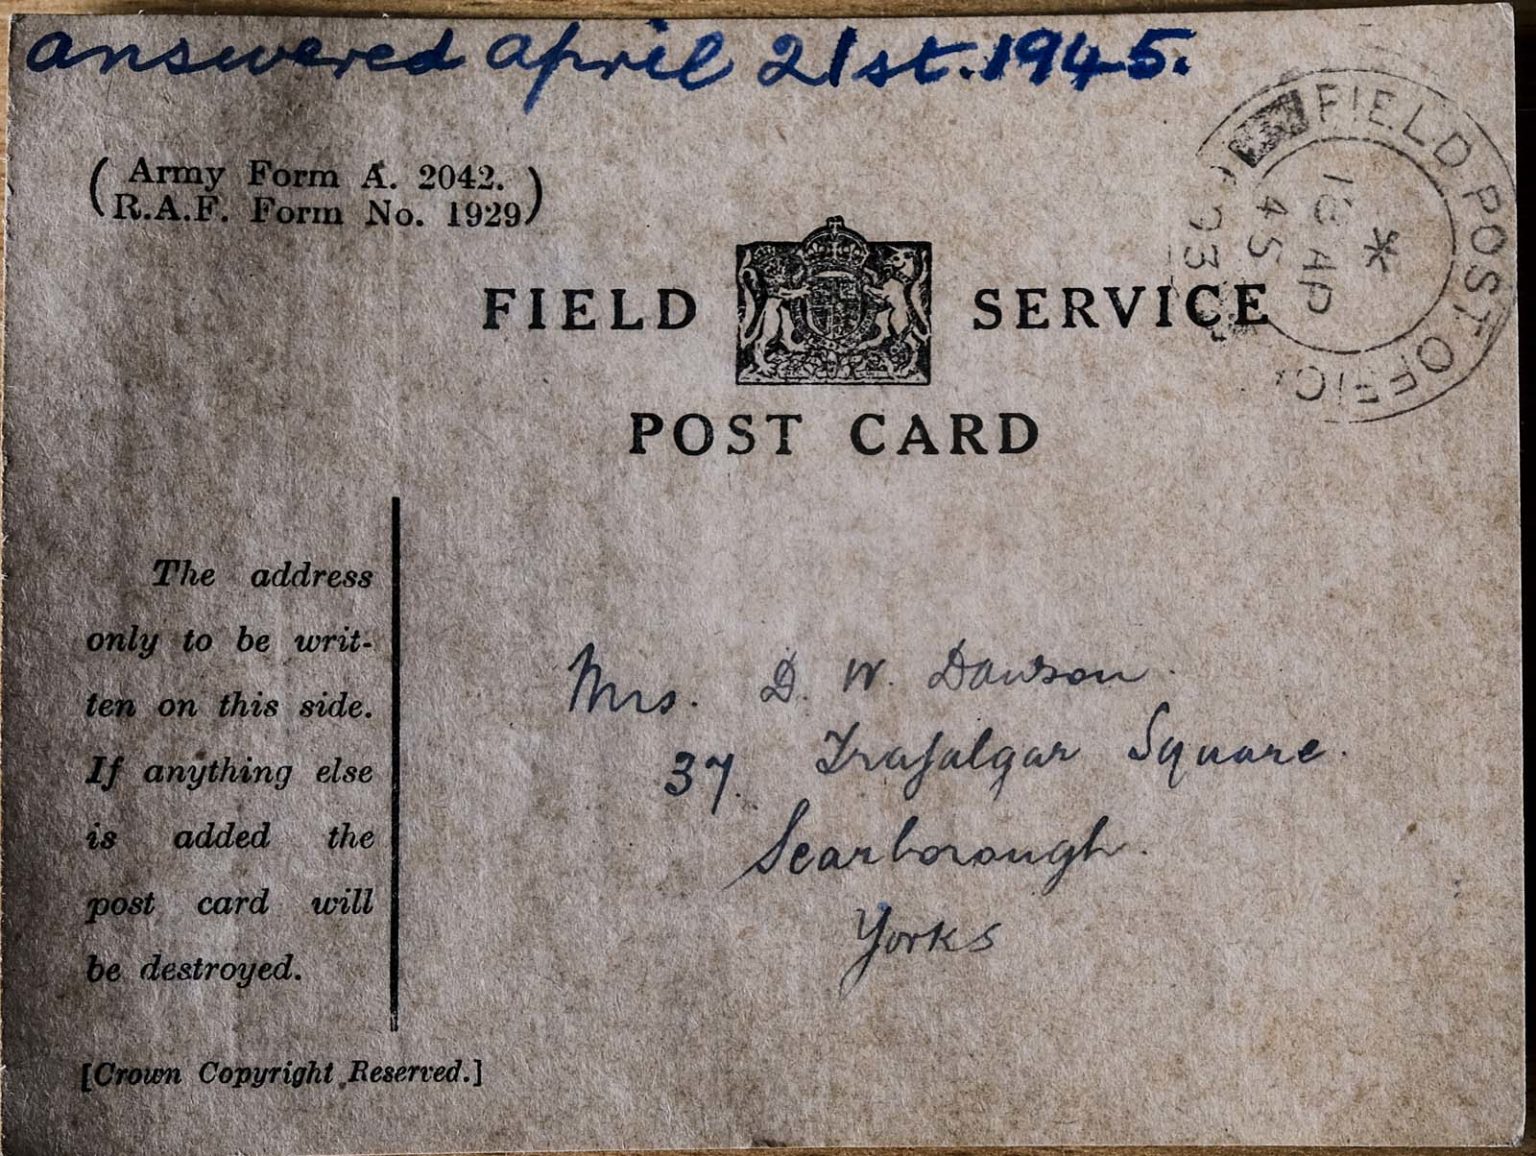 answered April 21st. 1945.
(Army Form A. 2042.
R.A.F. Form No. 1929)
FIELD POST OFFICE
AP
45
FIELD SERVICE
POST CARD
The address
only to be writ-
ten on this side.
If anything else
is added the
post card will
be destroyed.
Mrs. D. W. Dawson.
37. Trafalgar Square.
Scarborough.
Yorks
[Crown Copyright Reserved.]